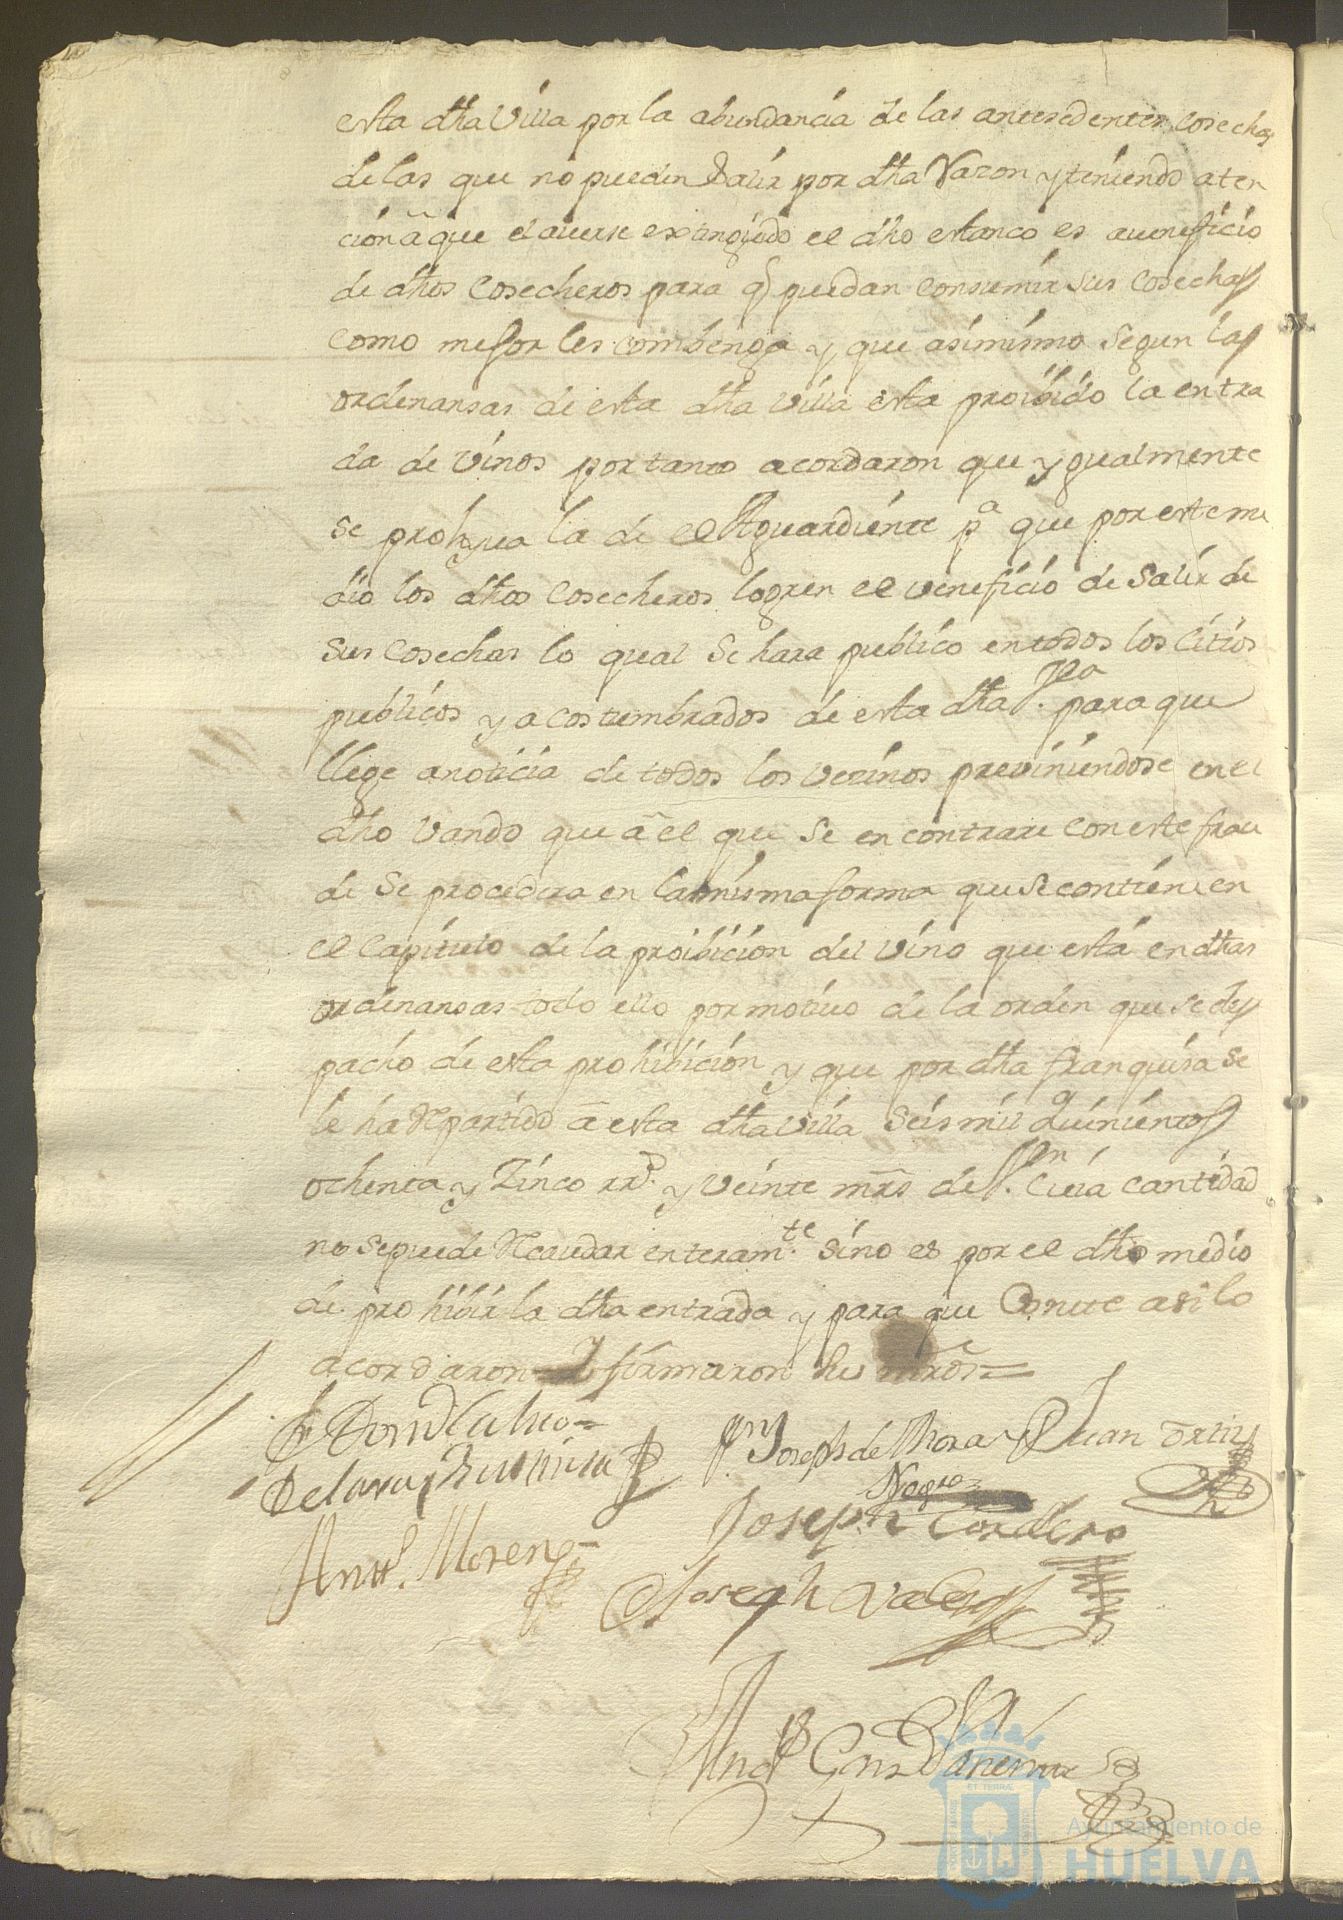 esta dha Villa por la abundancia de las antesedentes cosechas
de las que no pueden Salir por dha Razon y teniendo aten
cion a que el averse extinguido el dho estanco es a veneficio
de dhos Cosecheros para q puedan consumir sus cosechas
como mejor les combenga y que asimismo segun las
ordenansas de esta dha Villa esta proibido la entra
da de Vinos por tanto acordaron que ygualmente
se prohyva la de el Aguardiente pa que por este me
dio los dhos Cosecheros logren el veneficio de Salir de
sus Cosechas lo qual se hara publico en todos los citios
publicos y acostumbrados de esta dha Va para que
llege a noticia de todos los Vezinos previniendose en el
dho Vando que a el que se encontrare con este frau
de Se procedera en la misma forma que se contiene en
el Capitulo de la proibicion del Vino que está en dhas
ordenansas todo ello por motivo de la orden que se des
pacho de esta prohibicion y que por dha franquisa se
le ha Repartido a esta dha Villa Seis mil Quinientos
ochenta y Zinco rrs. y veinte mrs de Vn. Cuia cantidad
no se puede Recaudar enteramte. sino es por el dho medio
de prohibir la dha entrada y para que Conste asi lo
acordaron y firmaron sus mrds =
Joseph de Mora Juan Ortiz
Negro
Joseph Cordero
Antto. Moreno
Joseph
Ayuntamiento de
HUELVA